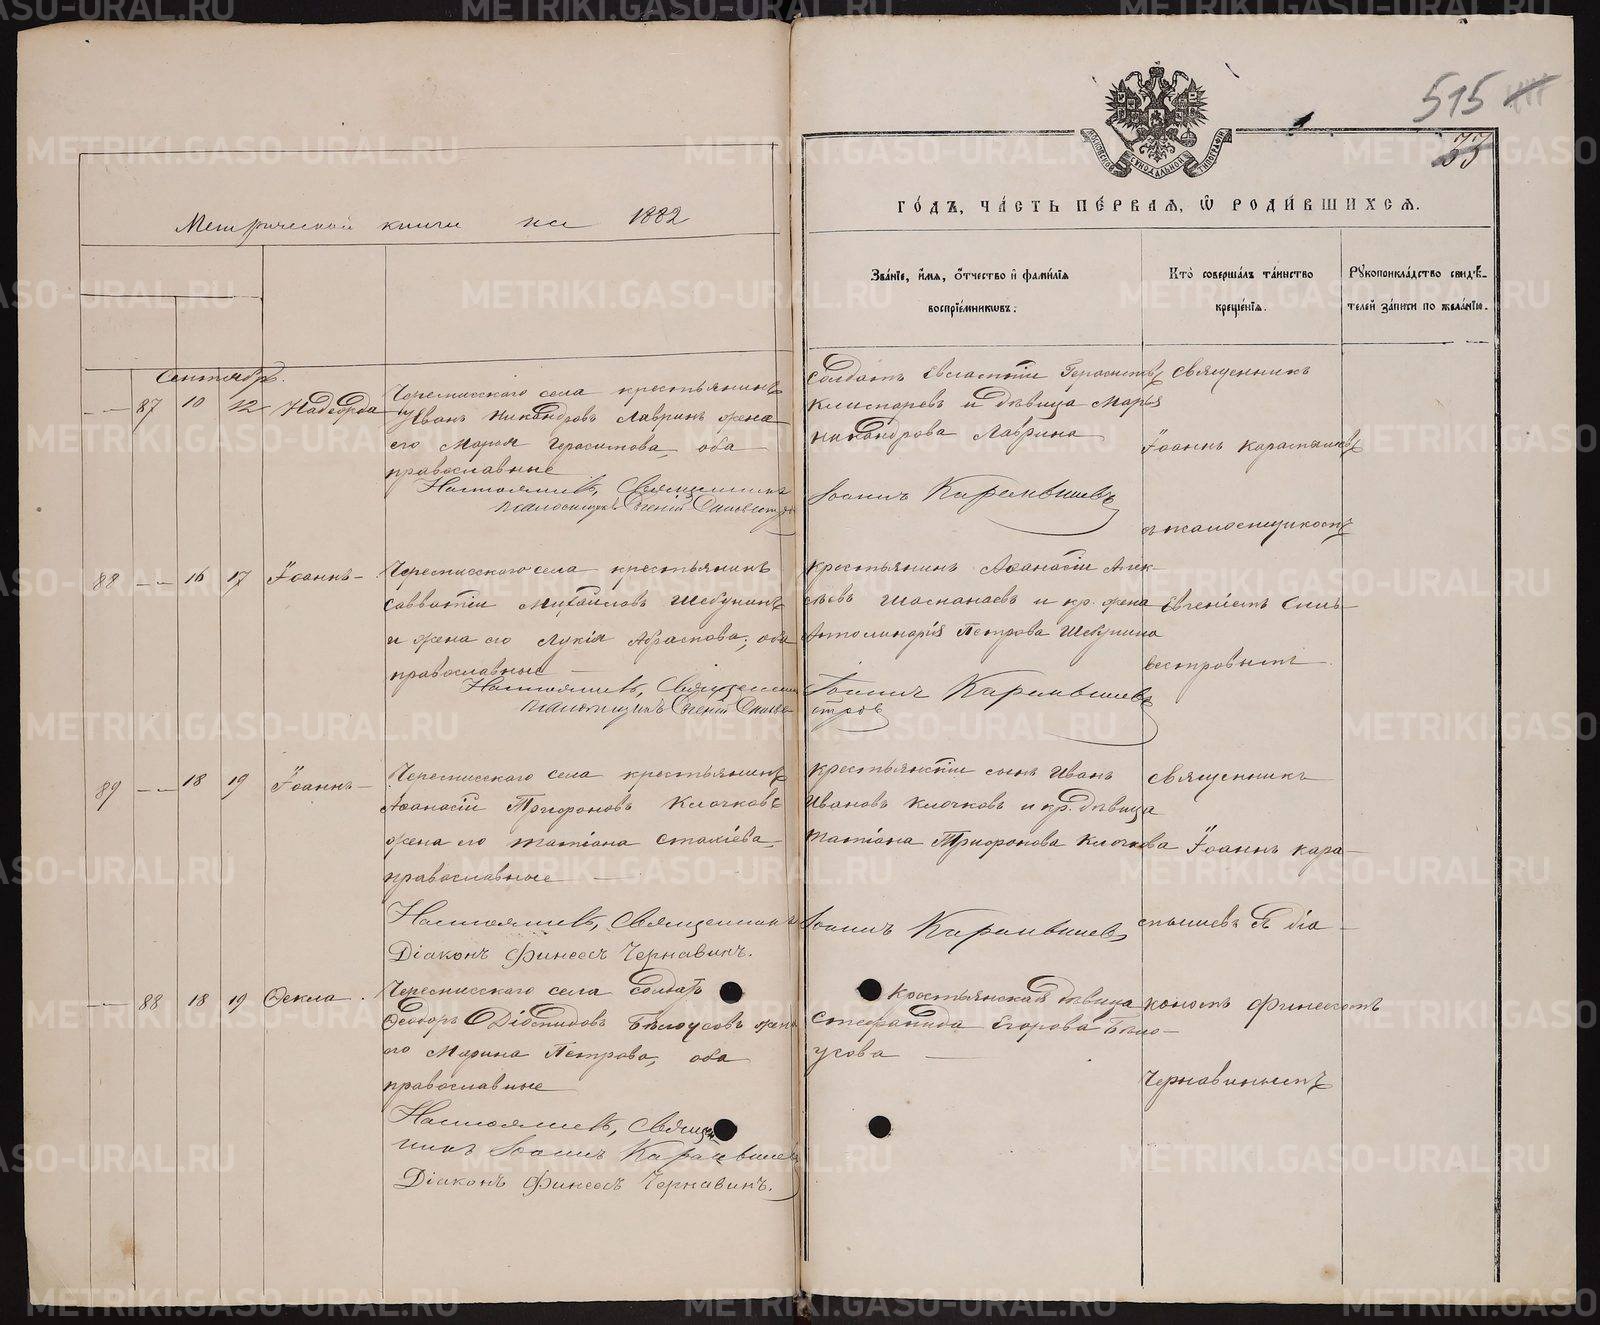 515
33
МОСКОВСКОЙ СѴНОДАЛЬНОЙ ТИПОГРАФІИ
Метрической книги на 1882
ГО́ДЪ, ЧА́СТЬ ПЕ́РВАЯ, Ѿ РОДИ́ВШИХСЯ.
Зва́нїе, и́мя, о҆́тчество и҆ фами́лїя
воспрїе́мникѡвъ.
Кто̀ соверша́лъ та́инство
креще́нїя.
Рꙋкоприкла́дство свидѣ́-
телей за́писи по жела́нїю.
Сентябрь.
87 10 12 Надежда
Черемисскаго села крестьянинъ
Иванъ Никандровъ Лавринъ жена
его Марья Герасимова, оба
православные
Священникъ
Псаломщикъ Евгеній
солдатъ Евлампій Герасимовъ
и дѣвица Марья
Никандрова Лаврина
Іоаннъ Карамышевъ
Священникъ
Іоаннъ Карамышевъ
съ псаломщикомъ
88 16 17 Іоаннъ
Черемисскаго села крестьянинъ
Савватій Михайловъ Шебунинъ
и жена его Лукія Абрамова, оба
православные
Священникъ
Псаломщикъ Евгеній
крестьянинъ Аѳанасій Алек-
сѣевъ и кр. жена
Аполинарія Петрова Шебунина
Іоаннъ Карамышевъ
Евгеніемъ Силь-
вестровымъ
89 18 19 Іоаннъ
Черемисскаго села крестьянинъ
Аѳанасій Трифоновъ Клочковъ
жена его Татіана
православные
Священникъ
Діаконъ Финеесъ Чернавинъ.
крестьянскій сынъ Иванъ
Ивановъ Клочковъ и кр. дѣвица
Татіана Трифонова Клочкова
Іоаннъ Карамышевъ
священникъ
Іоаннъ Кара-
мышевъ съ діа-
88 18 19 Ѳекла
Черемисскаго села солдатъ
Ѳеодоръ Діомидовъ Бѣлоусовъ жена
его Марина Петрова, оба
православные
Священ
никъ Іоаннъ Карамышевъ
Діаконъ Финеесъ Чернавинъ.
Крестьянская дѣвица
Стефанида Егорова Бѣло-
усова
кономъ Финеесомъ
Чернавинымъ
METRIKI.GASO-URAL.RU